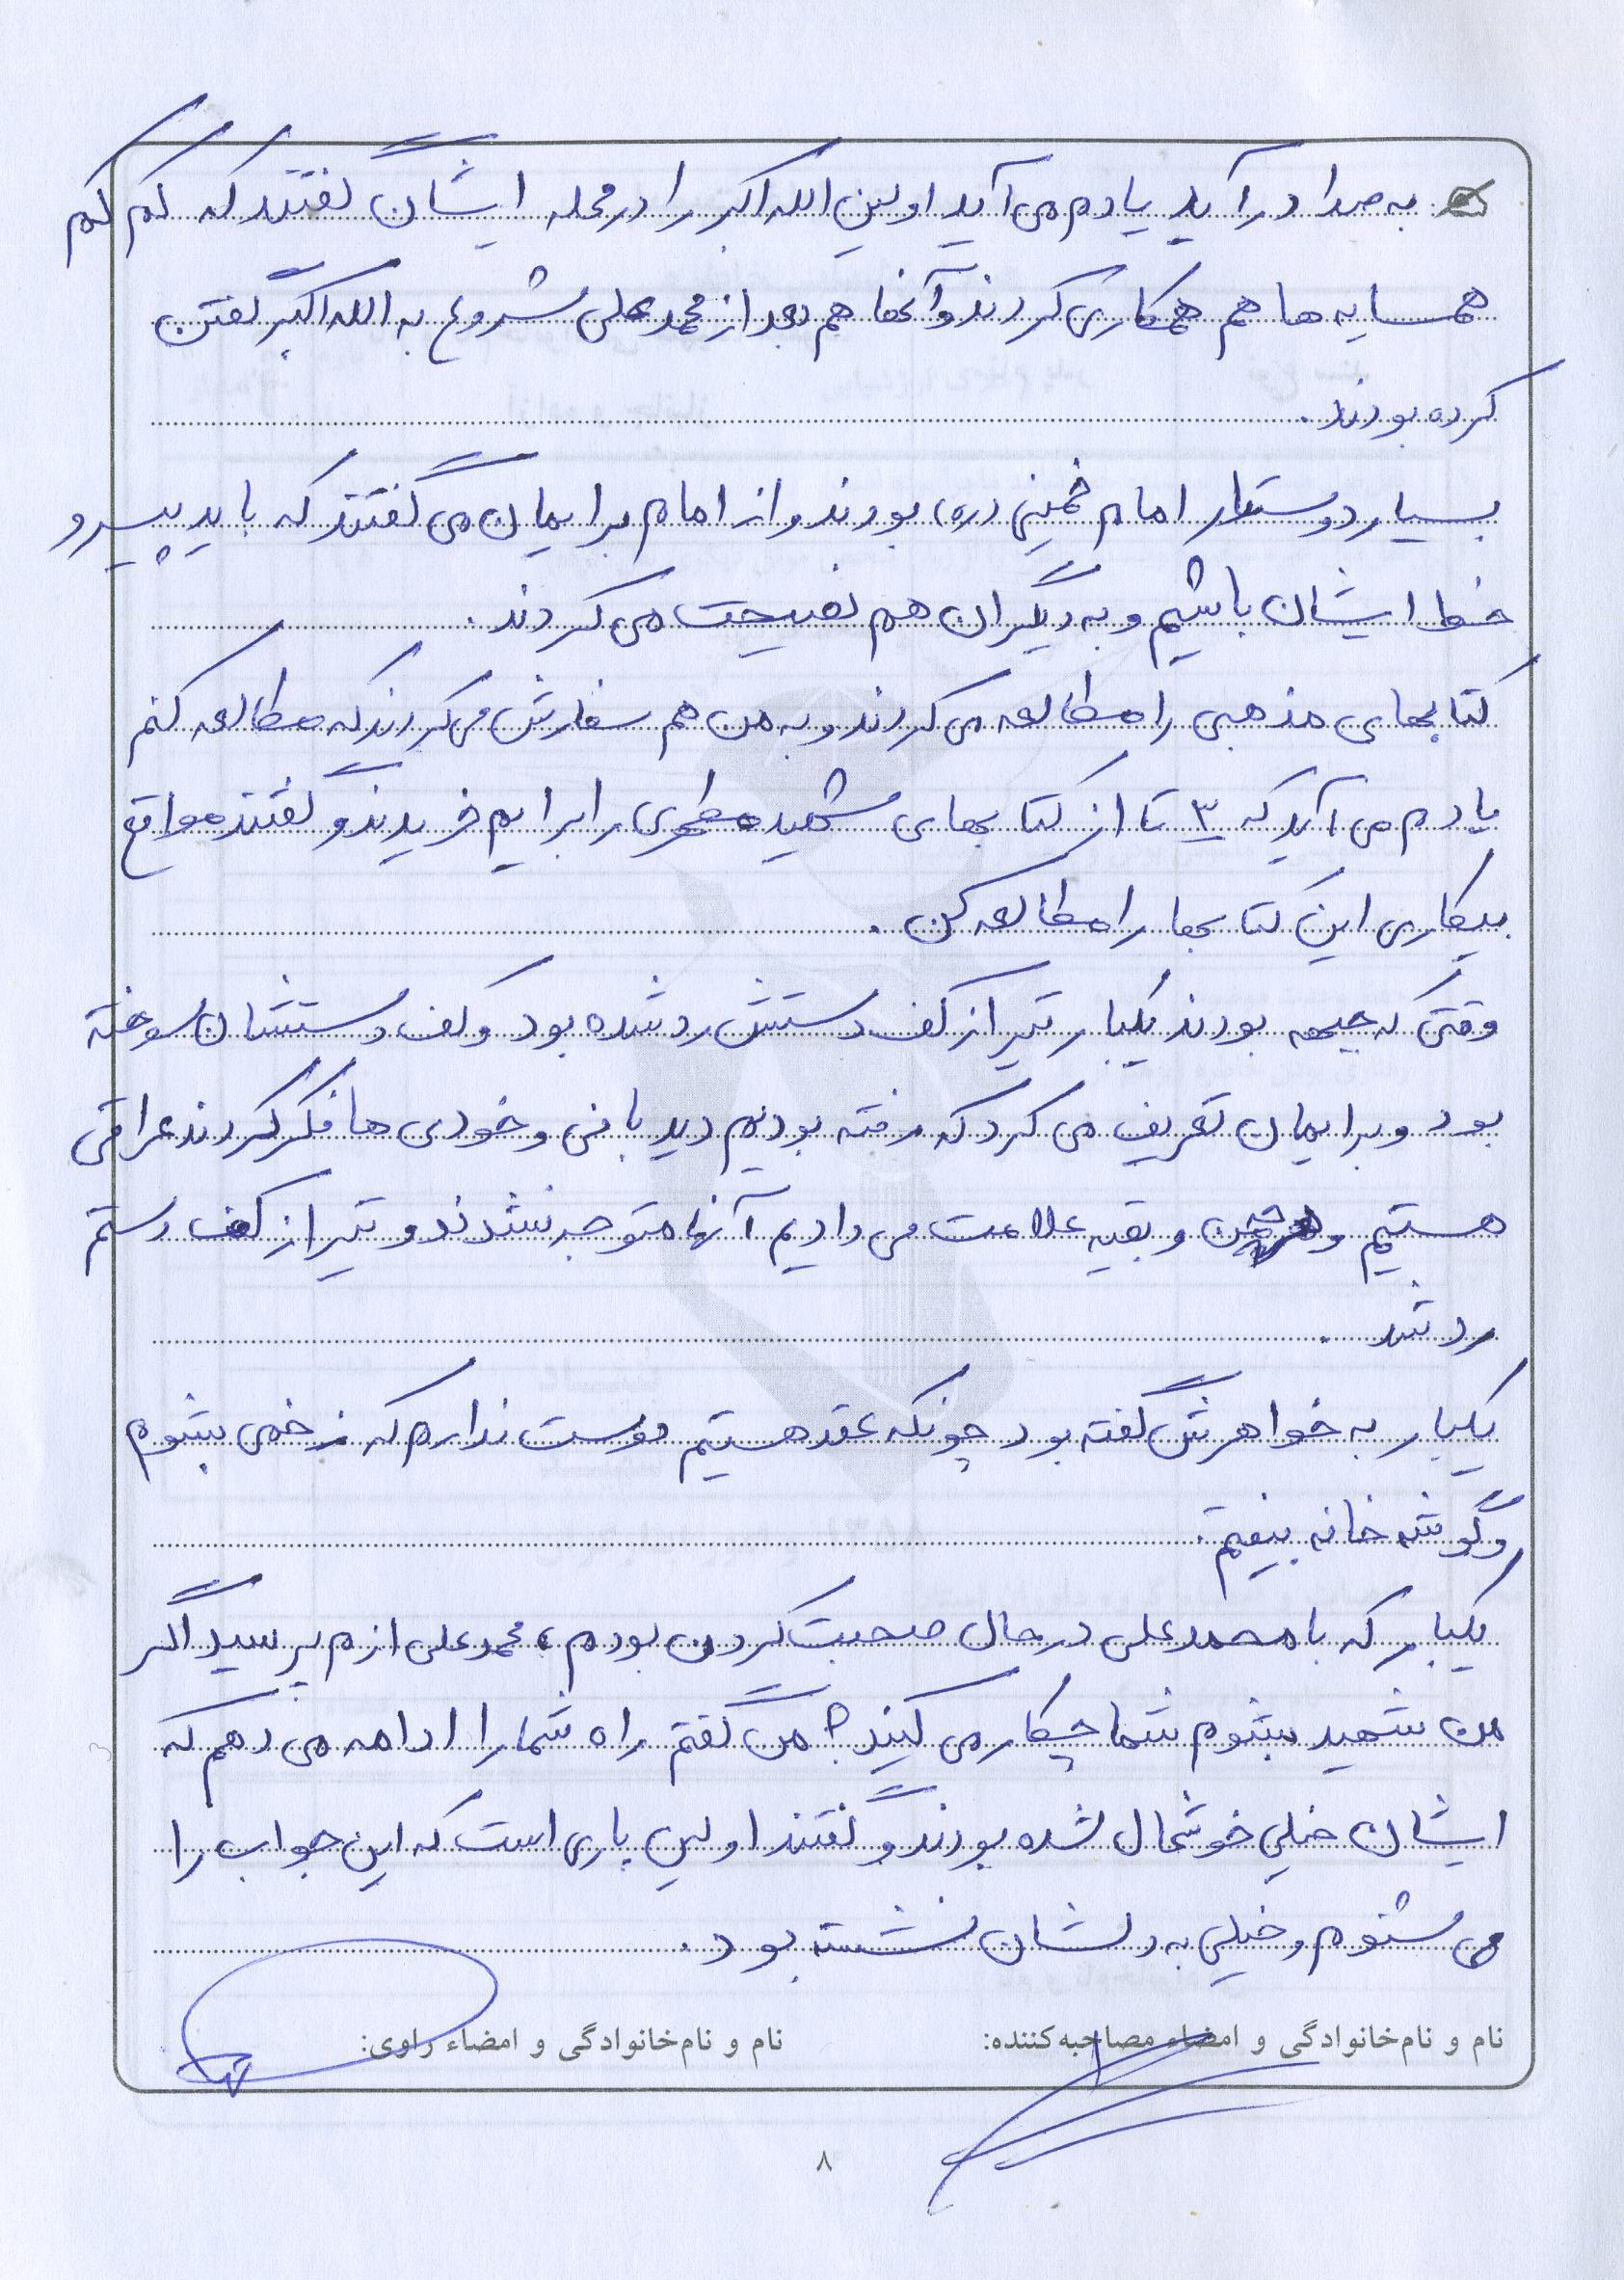 به صدا در آید یادم می آید اولین الله اکبر را در محله ایشان گفتند که کم کم
همسایه ها هم همکاری کردند و آنها هم بعد از محمد علی شروع به الله اکبر گفتن
کرده بودند.
بسیار دوستدار امام خمینی (ره) بودند و از امام برایمان می گفتند که باید پیرو
خط ایشان باشیم و به دیگران هم نصیحت می کردند.
کتابهای مذهبی را مطالعه می کردند و به من هم سفارش می کردند که مطالعه کنم
یادم می آید که ۳ تا از کتابهای شهید مطهری را برایم خریدند و گفتند مواقع
بیکاری این کتابها را مطالعه کن.
وقتی که جبهه بودند یکبار تیر از کف دستش رد شده بود و کف دستشان سوخته
بود و برایمان تعریف می کرد که رفته بودیم دید بانی و خودی ها فکر کردند عراقی
هستیم و هرچه من و بقیه علامت می دادیم آنها متوجه نشدند و تیر از کف دستم
رد شد.
یکبار به خواهرش گفته بود چونکه عقد هستیم دوست ندارم که زخمی بشوم
و گوشه خانه بیفتم.
یکبار که با محمد علی در حال صحبت کردن بودم، محمد علی ازم پرسید اگر
من شهید بشوم شما چکار می کنید؟ من گفتم راه شما را ادامه می دهم که
ایشان خیلی خوشحال شده بودند و گفتند اولین باری است که این جواب را
می شنوم و خیلی به دلشان نشسته بود.
نام و نام‌خانوادگی و امضاء مصاحبه‌کننده: نام و نام‌خانوادگی و امضاء راوی:
۸